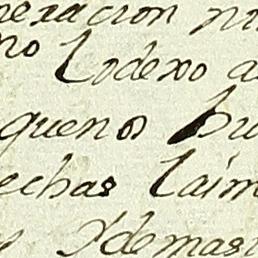 neracion
no Lodexo a
quenos bu
echas laim
Ydemas